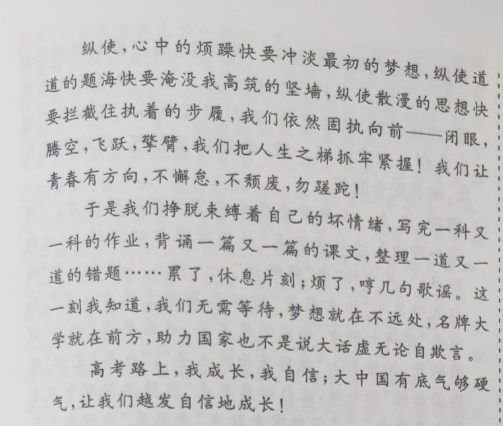 纵使，心中的烦躁快要冲淡最初的梦想，纵使道
道的题海快要淹没我高筑的坚墙，纵使散漫的思想快
要拦截住执着的步履，我们依然固执向前——闭眼，
腾空，飞跃，擎臂，我们把人生之梯抓牢紧握！我们让
青春有方向，不懈怠，不颓废，勿蹉跎！
于是我们挣脱束缚着自己的坏情绪，写完一科又
一科的作业，背诵一篇又一篇的课文，整理一道又一
道的错题……累了，休息片刻；烦了，哼几句歌谣。这
一刻我知道，我们无需等待，梦想就在不远处，名牌大
学就在前方，助力国家也不是说大话虚无论自欺言。
高考路上，我成长，我自信；大中国有底气够硬
气，让我们越发自信地成长！